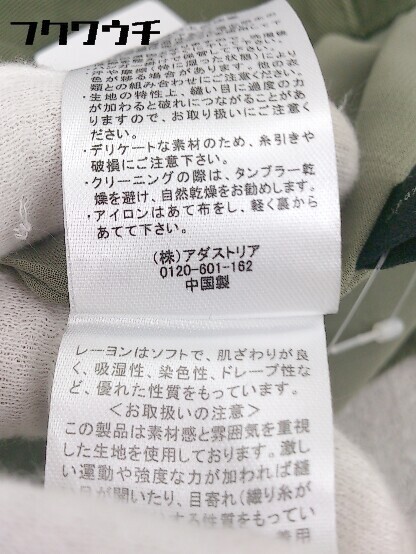 フクウウチ
保管して下さい。
・汗や摩擦(特に湿った状態)により
色が移る場合があります。他の衣
類との組み合わせにご注意ください。
・生地の特性上、縫い目に過度の力
が加わると破れにつながることがあ
りますので、お取り扱いにご注意く
ださい。
・デリケートな素材のため、糸引きや
破損にご注意下さい。
・クリーニングの際は、タンブラー乾
燥を避け、自然乾燥をお勧めします。
・アイロンはあて布をし、軽く裏から
あてて下さい。
(株)アダストリア
0120-601-162
中国製
レーヨンはソフトで、肌ざわりが良
く、吸湿性、染色性、ドレープ性な
ど、優れた性質をもっています。
<お取扱いの注意>
この製品は素材感と雰囲気を重視
した生地を使用しております。激し
い運動や強度な力が加われば縫
目が開いたり、目寄れ(織り糸が
する性質をもってい